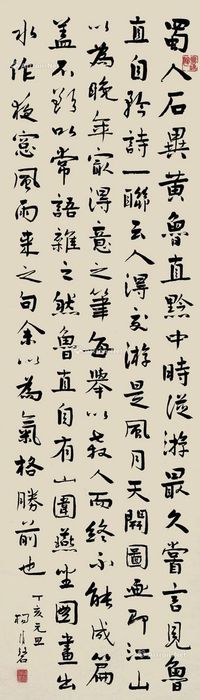 蜀人石異黃魯直黔中時從游最久嘗言見魯
直自矜詩一聯云人得交游是風月天開圖畫即江山
以為晚年最得意之筆每舉以教人而終不能成篇
蓋不欲以常語雜之然魯直自有山圍燕坐圖畫出
水作夜窗風雨來之句余以為氣格勝前也
丁亥元旦